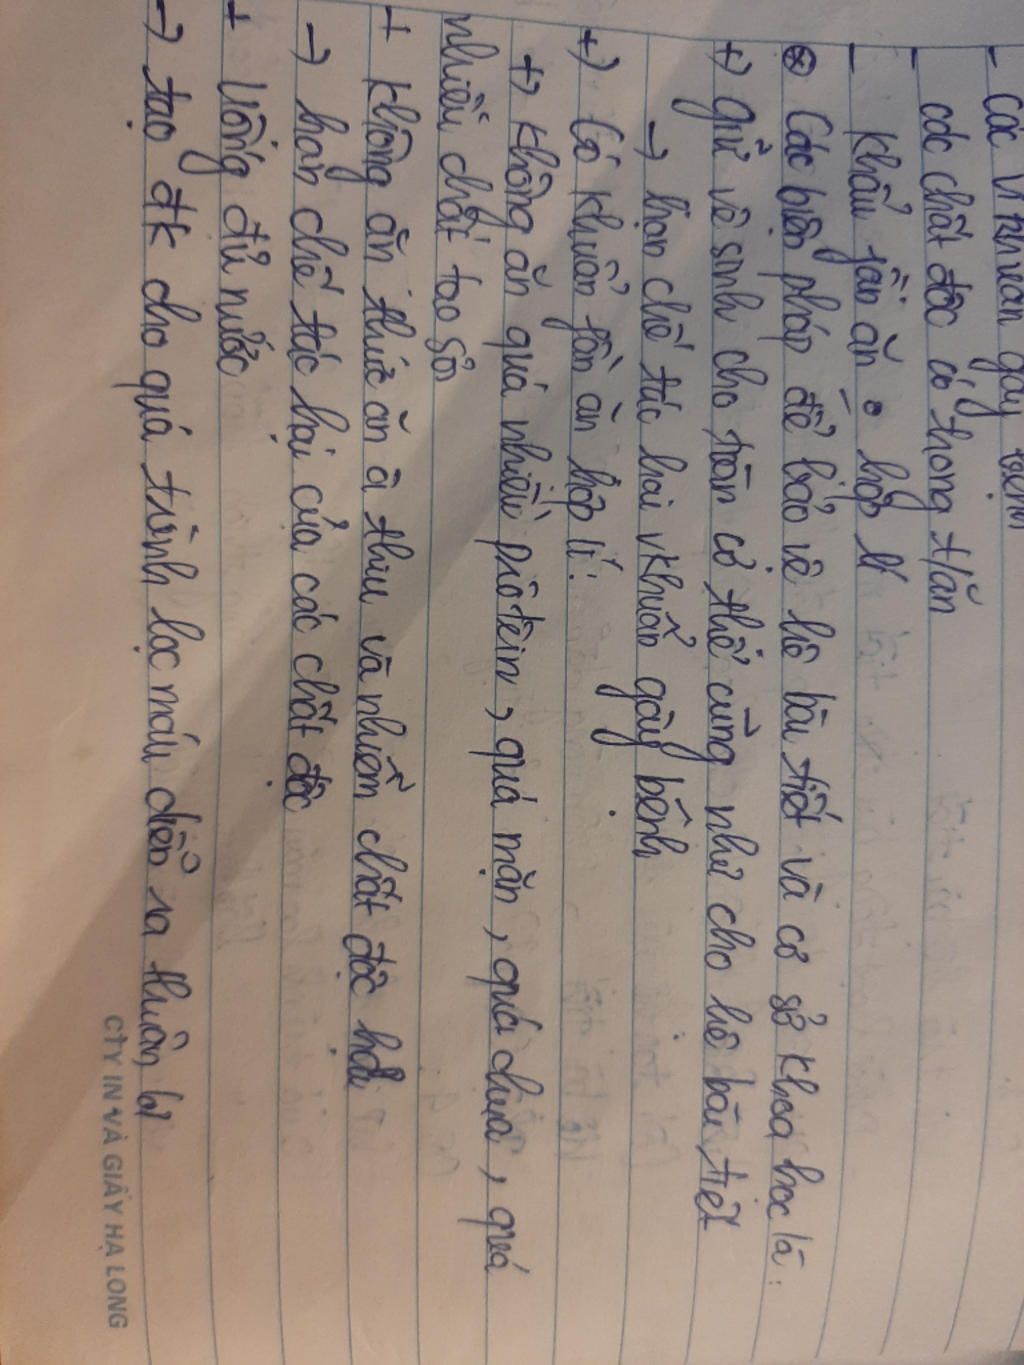 - Các vi khuẩn gây bệnh
- các chất độc có trong t/ăn
- Khẩu fần ăn o hợp lí
⊛ Các biện pháp để bảo vệ hệ bài tiết và cơ sở khoa học là:
+) giữ vệ sinh cho toàn cơ thể cũng như cho hệ bài tiết
→ hạn chế tác hại vkhuẩn gây bệnh
+) Có khuẩn fần ăn hợp lí:
+) không ăn quá nhiều prôtêin, quá mặn, quá chua, quá
nhiều chất tạo sỏi
+ không ăn thức ăn ôi thiu và nhiễm chất độc hại
→ hạn chế tác hại của các chất độc
+ Uống đủ nước
→ tạo đk cho quá trình lọc máu diễn ra thuận lợi
CTY IN VÀ GIẤY HẠ LONG